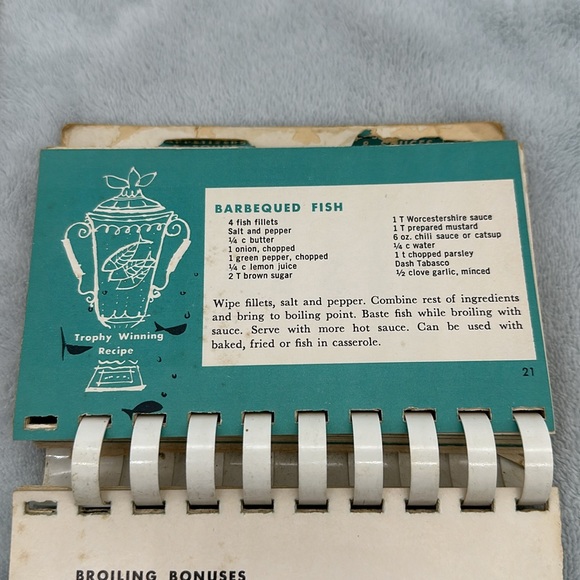 BARBEQUED FISH
4 fish fillets
Salt and pepper
¼ c butter
1 onion, chopped
1 green pepper, chopped
¼ c lemon juice
2 T brown sugar
1 T Worcestershire sauce
1 T prepared mustard
6 oz. chili sauce or catsup
¼ c water
1 t chopped parsley
Dash Tabasco
½ clove garlic, minced
Wipe fillets, salt and pepper. Combine rest of ingredients
and bring to boiling point. Baste fish while broiling with
sauce. Serve with more hot sauce. Can be used with
baked, fried or fish in casserole.
Trophy Winning
Recipe
21
BROILING BONUSES